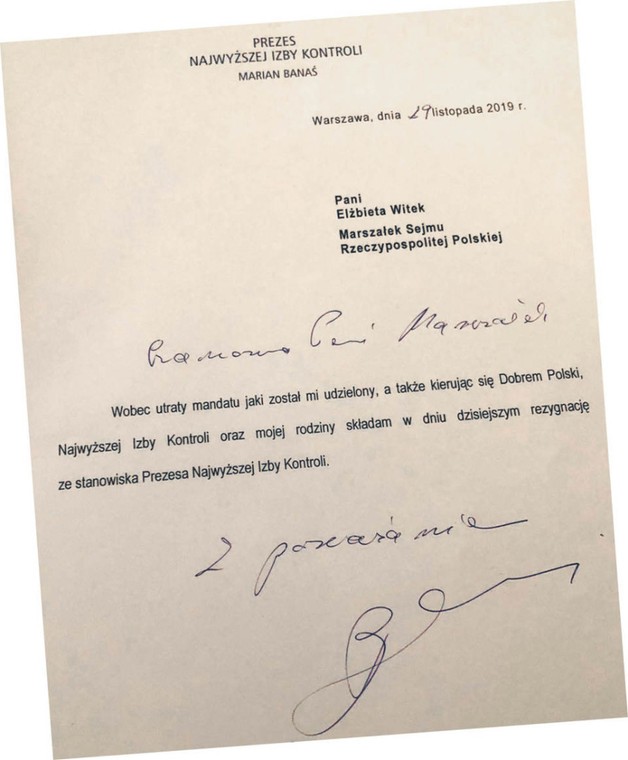 PREZES
NAJWYŻSZEJ IZBY KONTROLI
MARIAN BANAŚ
Warszawa, dnia 29 listopada 2019 r.
Pani
Elżbieta Witek
Marszałek Sejmu
Rzeczypospolitej Polskiej
Szanowna Pani Marszałek
Wobec utraty mandatu jaki został mi udzielony, a także kierując się Dobrem Polski,
Najwyższej Izby Kontroli oraz mojej rodziny składam w dniu dzisiejszym rezygnację
ze stanowiska Prezesa Najwyższej Izby Kontroli.
Z poważaniem